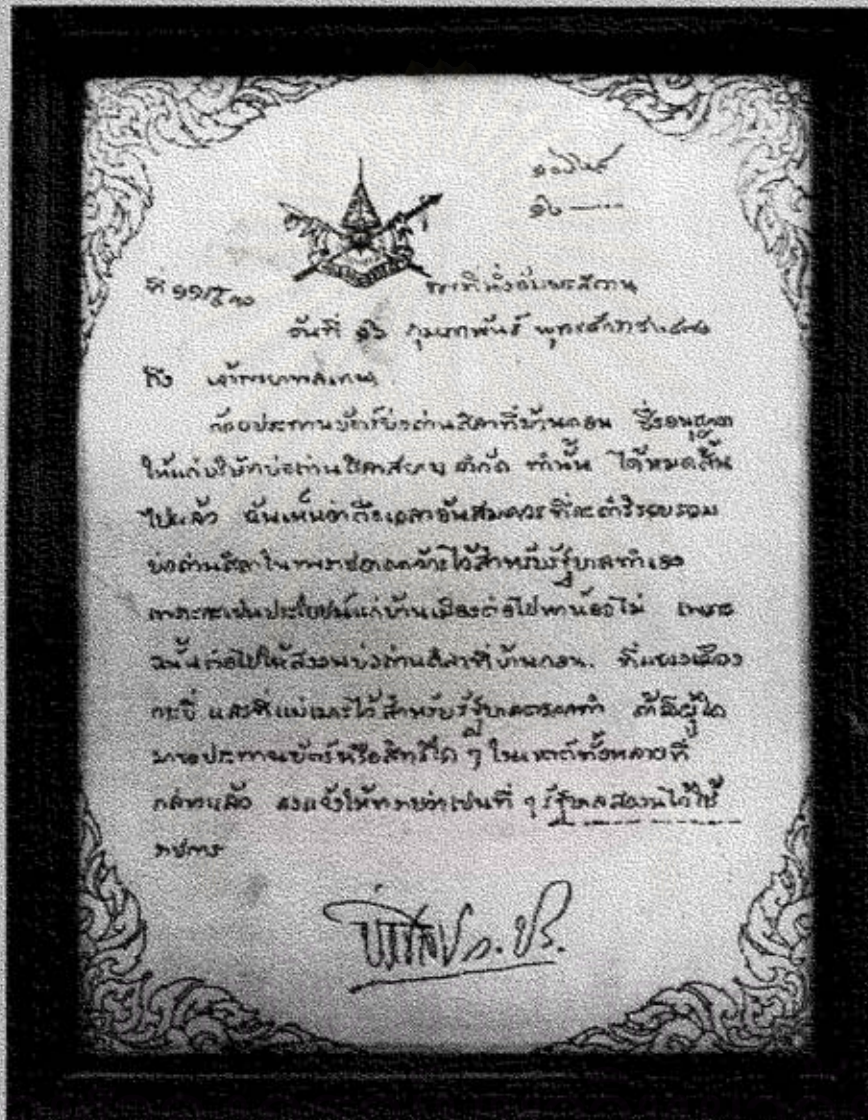 พระที่นั่งอัมพรสถาน
วันที่ ๑๖ กุมภาพันธ์ พุทธศักราช
ถึง เจ้าพระยาพลเทพ
ด้วยประทานบัตร์บ่อถ่านศิลาที่บ้านดอน ซึ่งอนุญาต
ให้แก่บริษัทบ่อถ่านศิลาสยาม จำกัด ทำนั้น ได้หมดสิ้น
ไปแล้ว ฉันเห็นว่าถึงเวลาอันสมควรที่จะดำริรวบรวม
บ่อถ่านศิลาในพระราชอาณาจักร์ไว้สำหรับรัฐบาลทำเอง
เพราะจะเปนประโยชน์แก่บ้านเมืองต่อไปหาน้อยไม่ เพราะ
ฉนั้นต่อไปให้สงวนบ่อถ่านศิลาที่บ้านดอน ที่แขวงเมือง
กระบี่ และที่แม่เมาะไว้สำหรับรัฐบาล ทำ ถ้ามีผู้ใด
มาขอประทานบัตร์หรือสิทธิใด ๆ ในเขตต์ทั้งหลายที่
กล่าวแล้ว จงแจ้งให้ทราบว่าเปนที่ ๆ รัฐบาลสงวนไว้ใช้
ราชการ
ประชาธิปก. ปร.